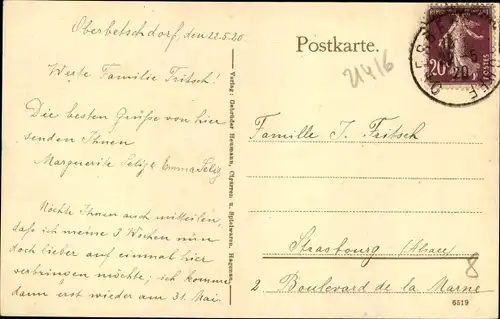 Oberbetschdorf, den 22.5.20.
Werte Familie Fritsch!
Die besten Grüße von hier
senden Ihnen
Marguerite Selig & Emma Selig
Möchte Ihnen auch mitteilen,
daß ich meine 3 Wochen nun
doch lieber auf einmal hier
verbringen möchte; ich komme
dann erst wieder am 31. Mai.
Verlag: Gebrüder Heumann, Cigarren u. Spielwaren, Hagenau.
Postkarte.
21416
20
20
Famille J. Fritsch
Strasbourg (Alsace)
8
2 Boulevard de la Marne
6519